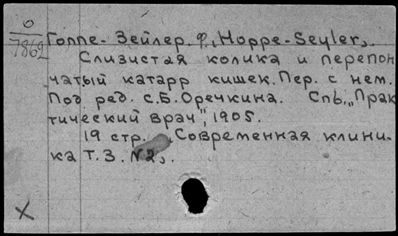 О
7862
Гоппе-Зейлер. Ф., Hoppe-Seyler,.
Слизистая колика и перепон
чатый катарр кишек. Пер. с нем.
Под ред. С.Б. Оречкина. Спб., "Прак
тический врач", 1905.
19 стр. Современная клини-
ка Т. 3. №2,.
X